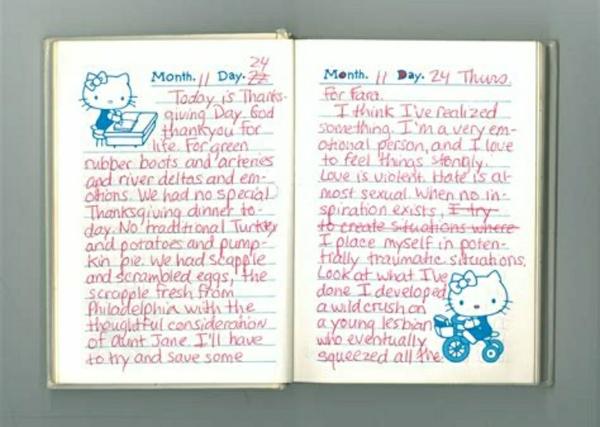 24
Month. 11 Day. 22
Today is Thanks-
giving Day. God
thankyou for
life. For green
rubber boots and arteries
and river deltas and em-
otions. We had no special
Thanksgiving dinner to-
day. No traditional Turkey
and potatoes and pump-
kin pie. We had scapple
and scrambled eggs, the
scrapple fresh from
Philadelphia with the
thoughtful consideration
of aunt Jane. I'll have
to try and save some
Month. 11 Day. 24 Thurs.
for Fara.
I think I've realized
something. I'm a very em-
otional person, and I love
to feel things stongly.
Love is violent. Hate is al-
most sexual. When no in-
spiration exists, I try
to create situations where
I place myself in poten-
tially traumatic situations.
Look at what I've
done. I developed
a wild crush on
a young lesbian
who eventually
squeezed all the